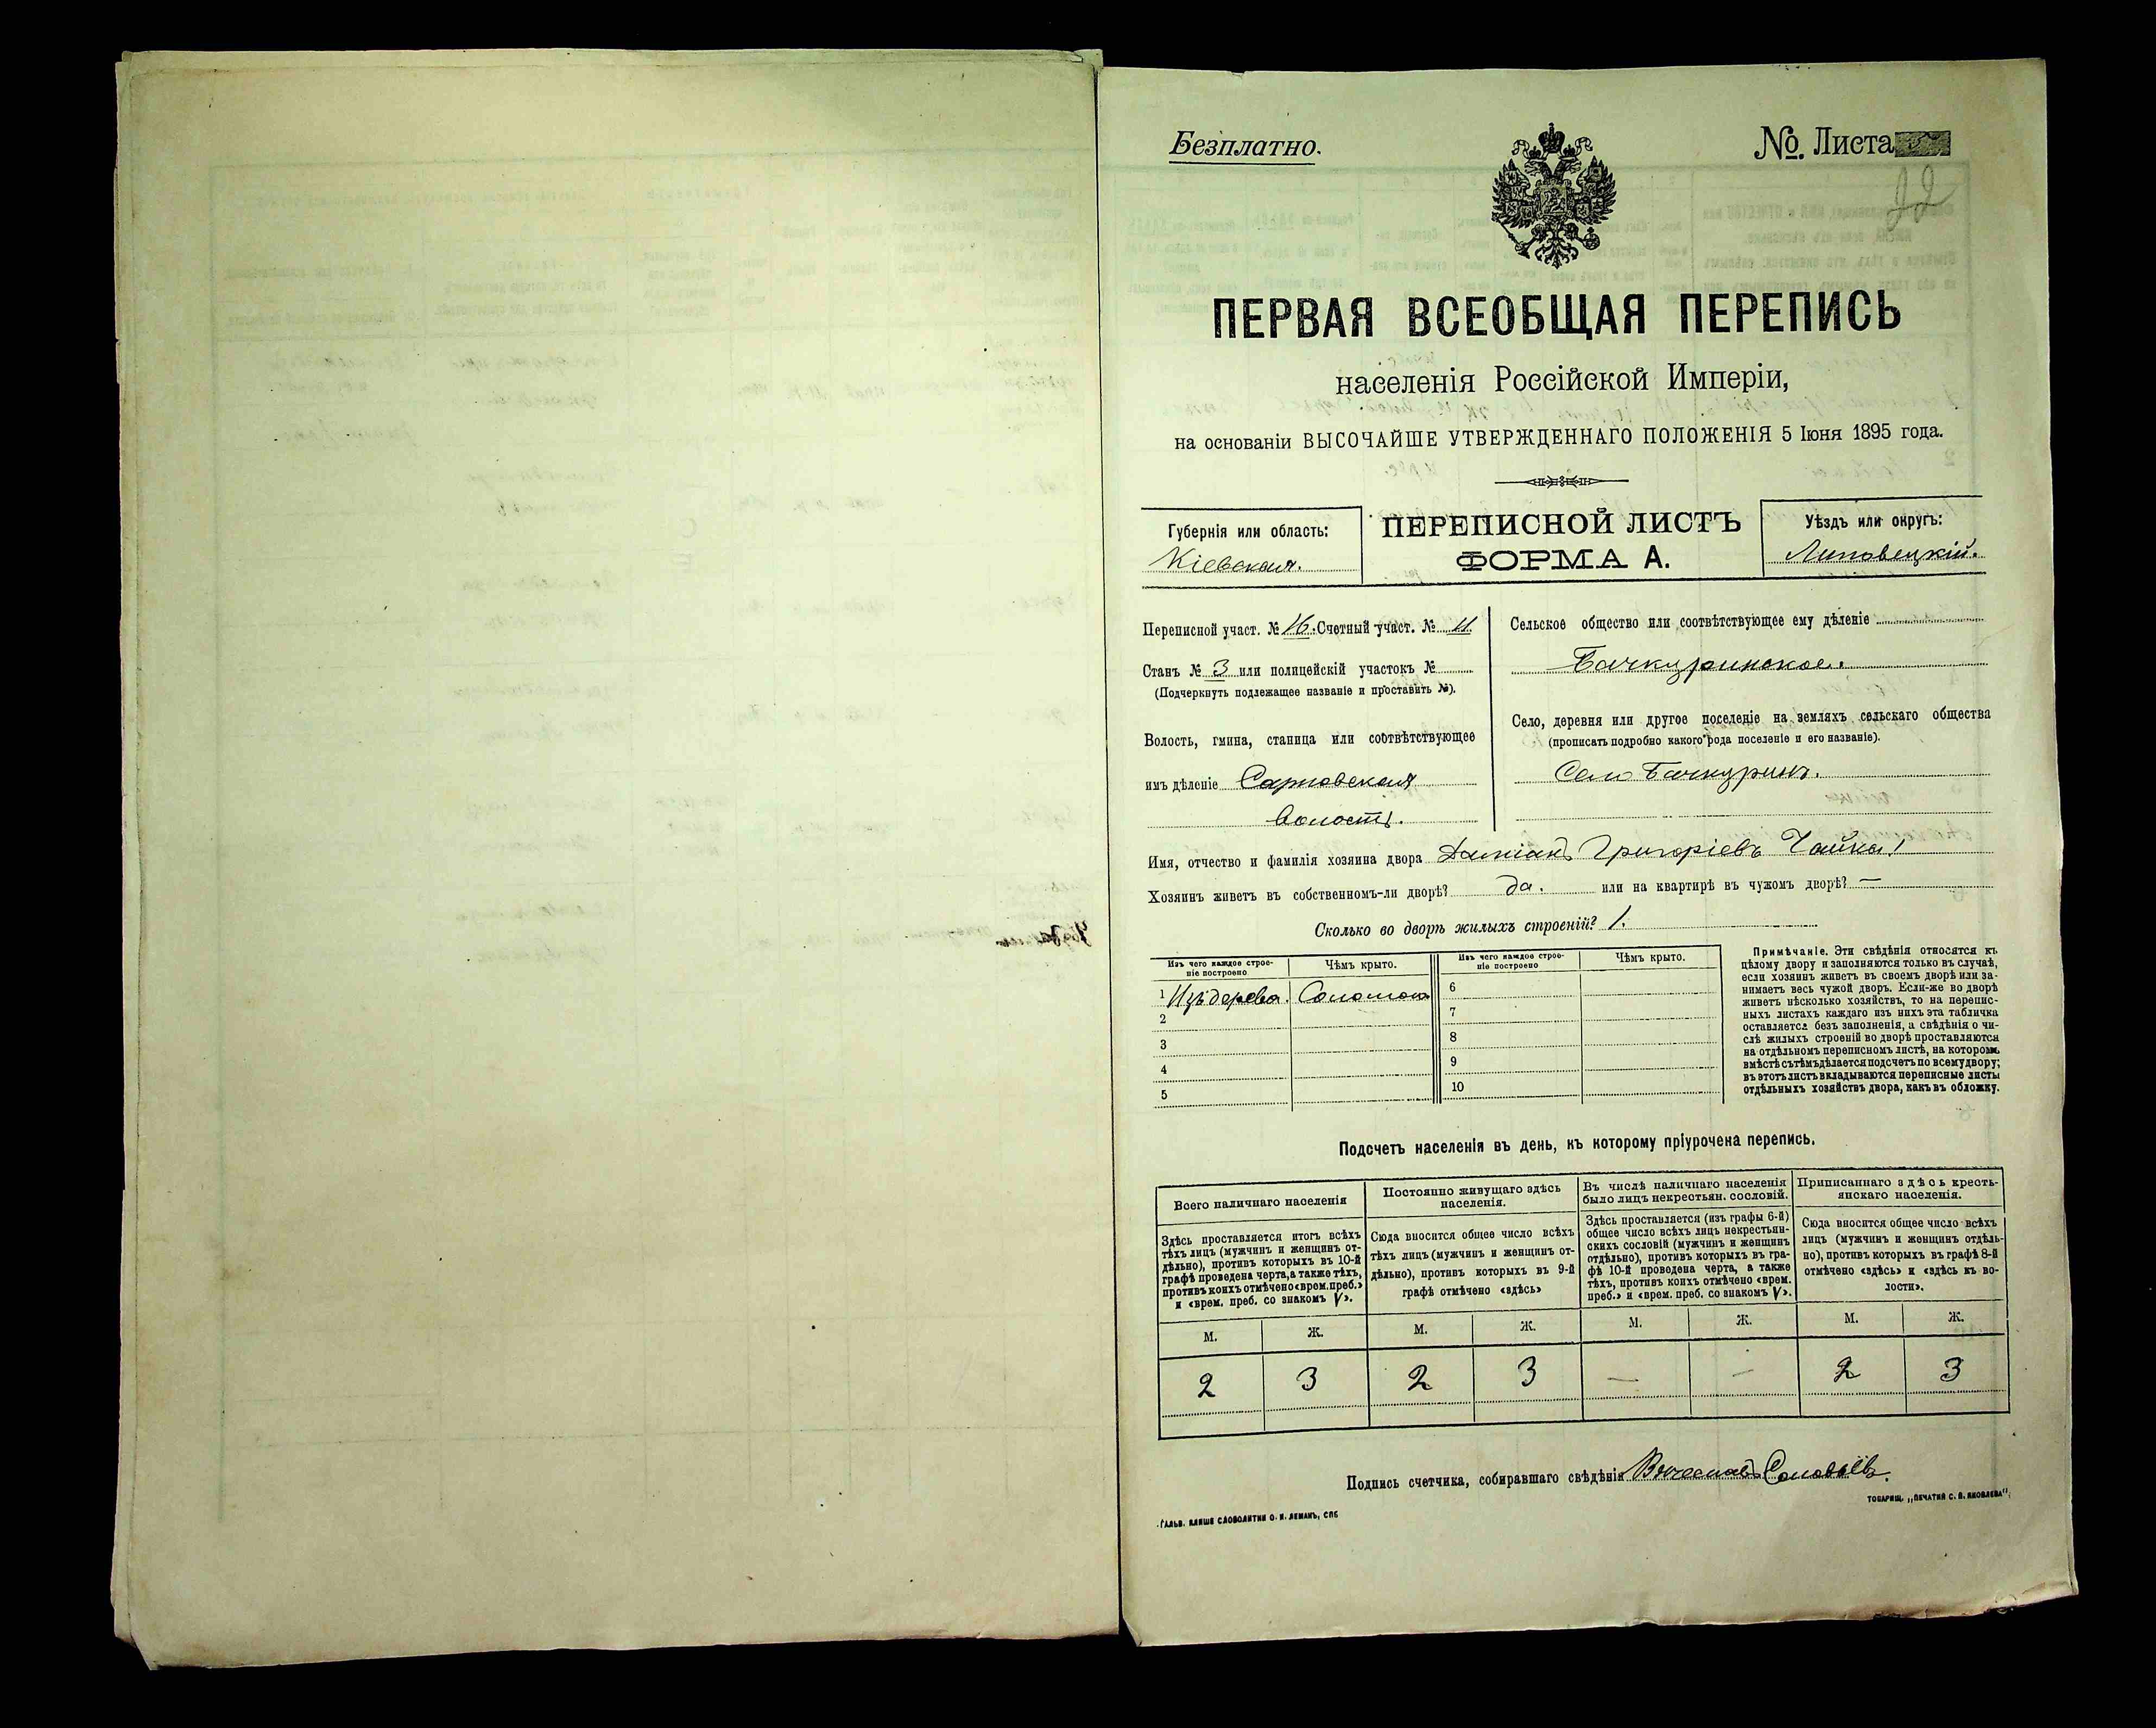 Безплатно.
№ Листа
22
ПЕРВАЯ ВСЕОБЩАЯ ПЕРЕПИСЬ
населенія Россійской Имперіи,
на основаніи ВЫСОЧАЙШЕ УТВЕРЖДЕННАГО ПОЛОЖЕНІЯ 5 Іюня 1895 года.
Губернія или область:
Кіевская.
ПЕРЕПИСНОЙ ЛИСТЪ
ФОРМА А.
Уѣздъ или округъ:
Липовецкій.
Переписной участ. № 16. Счетный участ. № 11
Станъ № 3 или полицейскій участокъ №
(Подчеркнуть подлежащее названіе и проставить №).
Волость, гмина, станица или соотвѣтствующее
имъ дѣленіе Сарновская
Волость.
Сельское общество или соотвѣтствующее ему дѣленіе
Бачкуринское.
Село, деревня или другое поселеніе на земляхъ сельскаго общества
(прописать подробно какого рода поселеніе и его названіе).
Село Бачкуринъ.
Имя, отчество и фамилія хозяина двора Даміанъ Григоріевъ Чайка
Хозяинъ живетъ въ собственномъ-ли дворѣ? да. или на квартирѣ въ чужомъ дворѣ? —
Сколько во дворѣ жилыхъ строеній? 1.
Изъ чего каждое строе-
ніе построено
Чѣмъ крыто.
Изъ чего каждое строе-
ніе построено
Чѣмъ крыто.
1 Изъ дерева. Соломою
2
3
4
5
6
7
8
9
10
Примѣчаніе. Эти свѣдѣнія относятся къ
цѣлому двору и заполняются только въ случаѣ,
если хозяинъ живетъ въ своемъ дворѣ или за-
нимаетъ весь чужой дворъ. Если-же во дворѣ
живетъ нѣсколько хозяйствъ, то на перепис-
ныхъ листахъ каждаго изъ нихъ эта табличка
оставляется безъ заполненія, а свѣдѣнія о чи-
слѣ жилыхъ строеній во дворѣ проставляются
на отдѣльномъ переписномъ листѣ, на которомъ
вмѣстѣ съ тѣмъ дѣлается подсчетъ по всему двору;
въ этотъ листъ вкладываются переписные листы
отдѣльныхъ хозяйствъ двора, какъ въ обложку.
Подсчетъ населенія въ день, къ которому пріурочена перепись.
Всего наличнаго населенія
Здѣсь проставляется итогъ всѣхъ
тѣхъ лицъ (мужчинъ и женщинъ от-
дѣльно), противъ которыхъ въ 10-й
графѣ проведена черта, а также тѣхъ,
противъ коихъ отмѣчено «врем. преб.»
и «врем. преб. со знакомъ V».
Постоянно живущаго здѣсь
населенія.
Сюда вносится общее число всѣхъ
тѣхъ лицъ (мужчинъ и женщинъ от-
дѣльно), противъ которыхъ въ 9-й
графѣ отмѣчено «здѣсь»
Въ числѣ наличнаго населенія
было лицъ некрестьян. сословій.
Здѣсь проставляется (изъ графы 6-й)
общее число всѣхъ лицъ некрестьян-
скихъ сословій (мужчинъ и женщинъ
отдѣльно), противъ которыхъ въ гра-
фѣ 10-й проведена черта, а также
тѣхъ, противъ коихъ отмѣчено «врем.
преб.» и «врем. преб. со знакомъ V».
Приписаннаго здѣсь кресть-
янскаго населенія.
Сюда вносится общее число всѣхъ
лицъ (мужчинъ и женщинъ отдѣль-
но), противъ которыхъ въ графѣ 8-й
отмѣчено «здѣсь» и «здѣсь къ во-
лости».
М. Ж. М. Ж. М. Ж. М. Ж.
2 3 2 3 — — 2 3
Подпись счетчика, собиравшаго свѣдѣнія Вячеславъ Соловьёвъ.
ГАЛЬВ. КЛИШЕ СЛОВОЛИТНИ О. И. ЛЕМАНЪ, СПБ
ТОВАРИЩ. „ПЕЧАТНЯ С. П. ЯКОВЛЕВА“